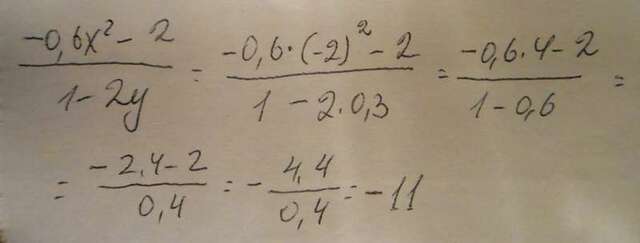 (-0,6x² - 2)/(1 - 2y) = (-0,6·(-2)² - 2)/(1 - 2·0,3) = (-0,6·4 - 2)/(1 - 0,6) =
= (-2,4 - 2)/(0,4) = -(4,4)/(0,4) = -11